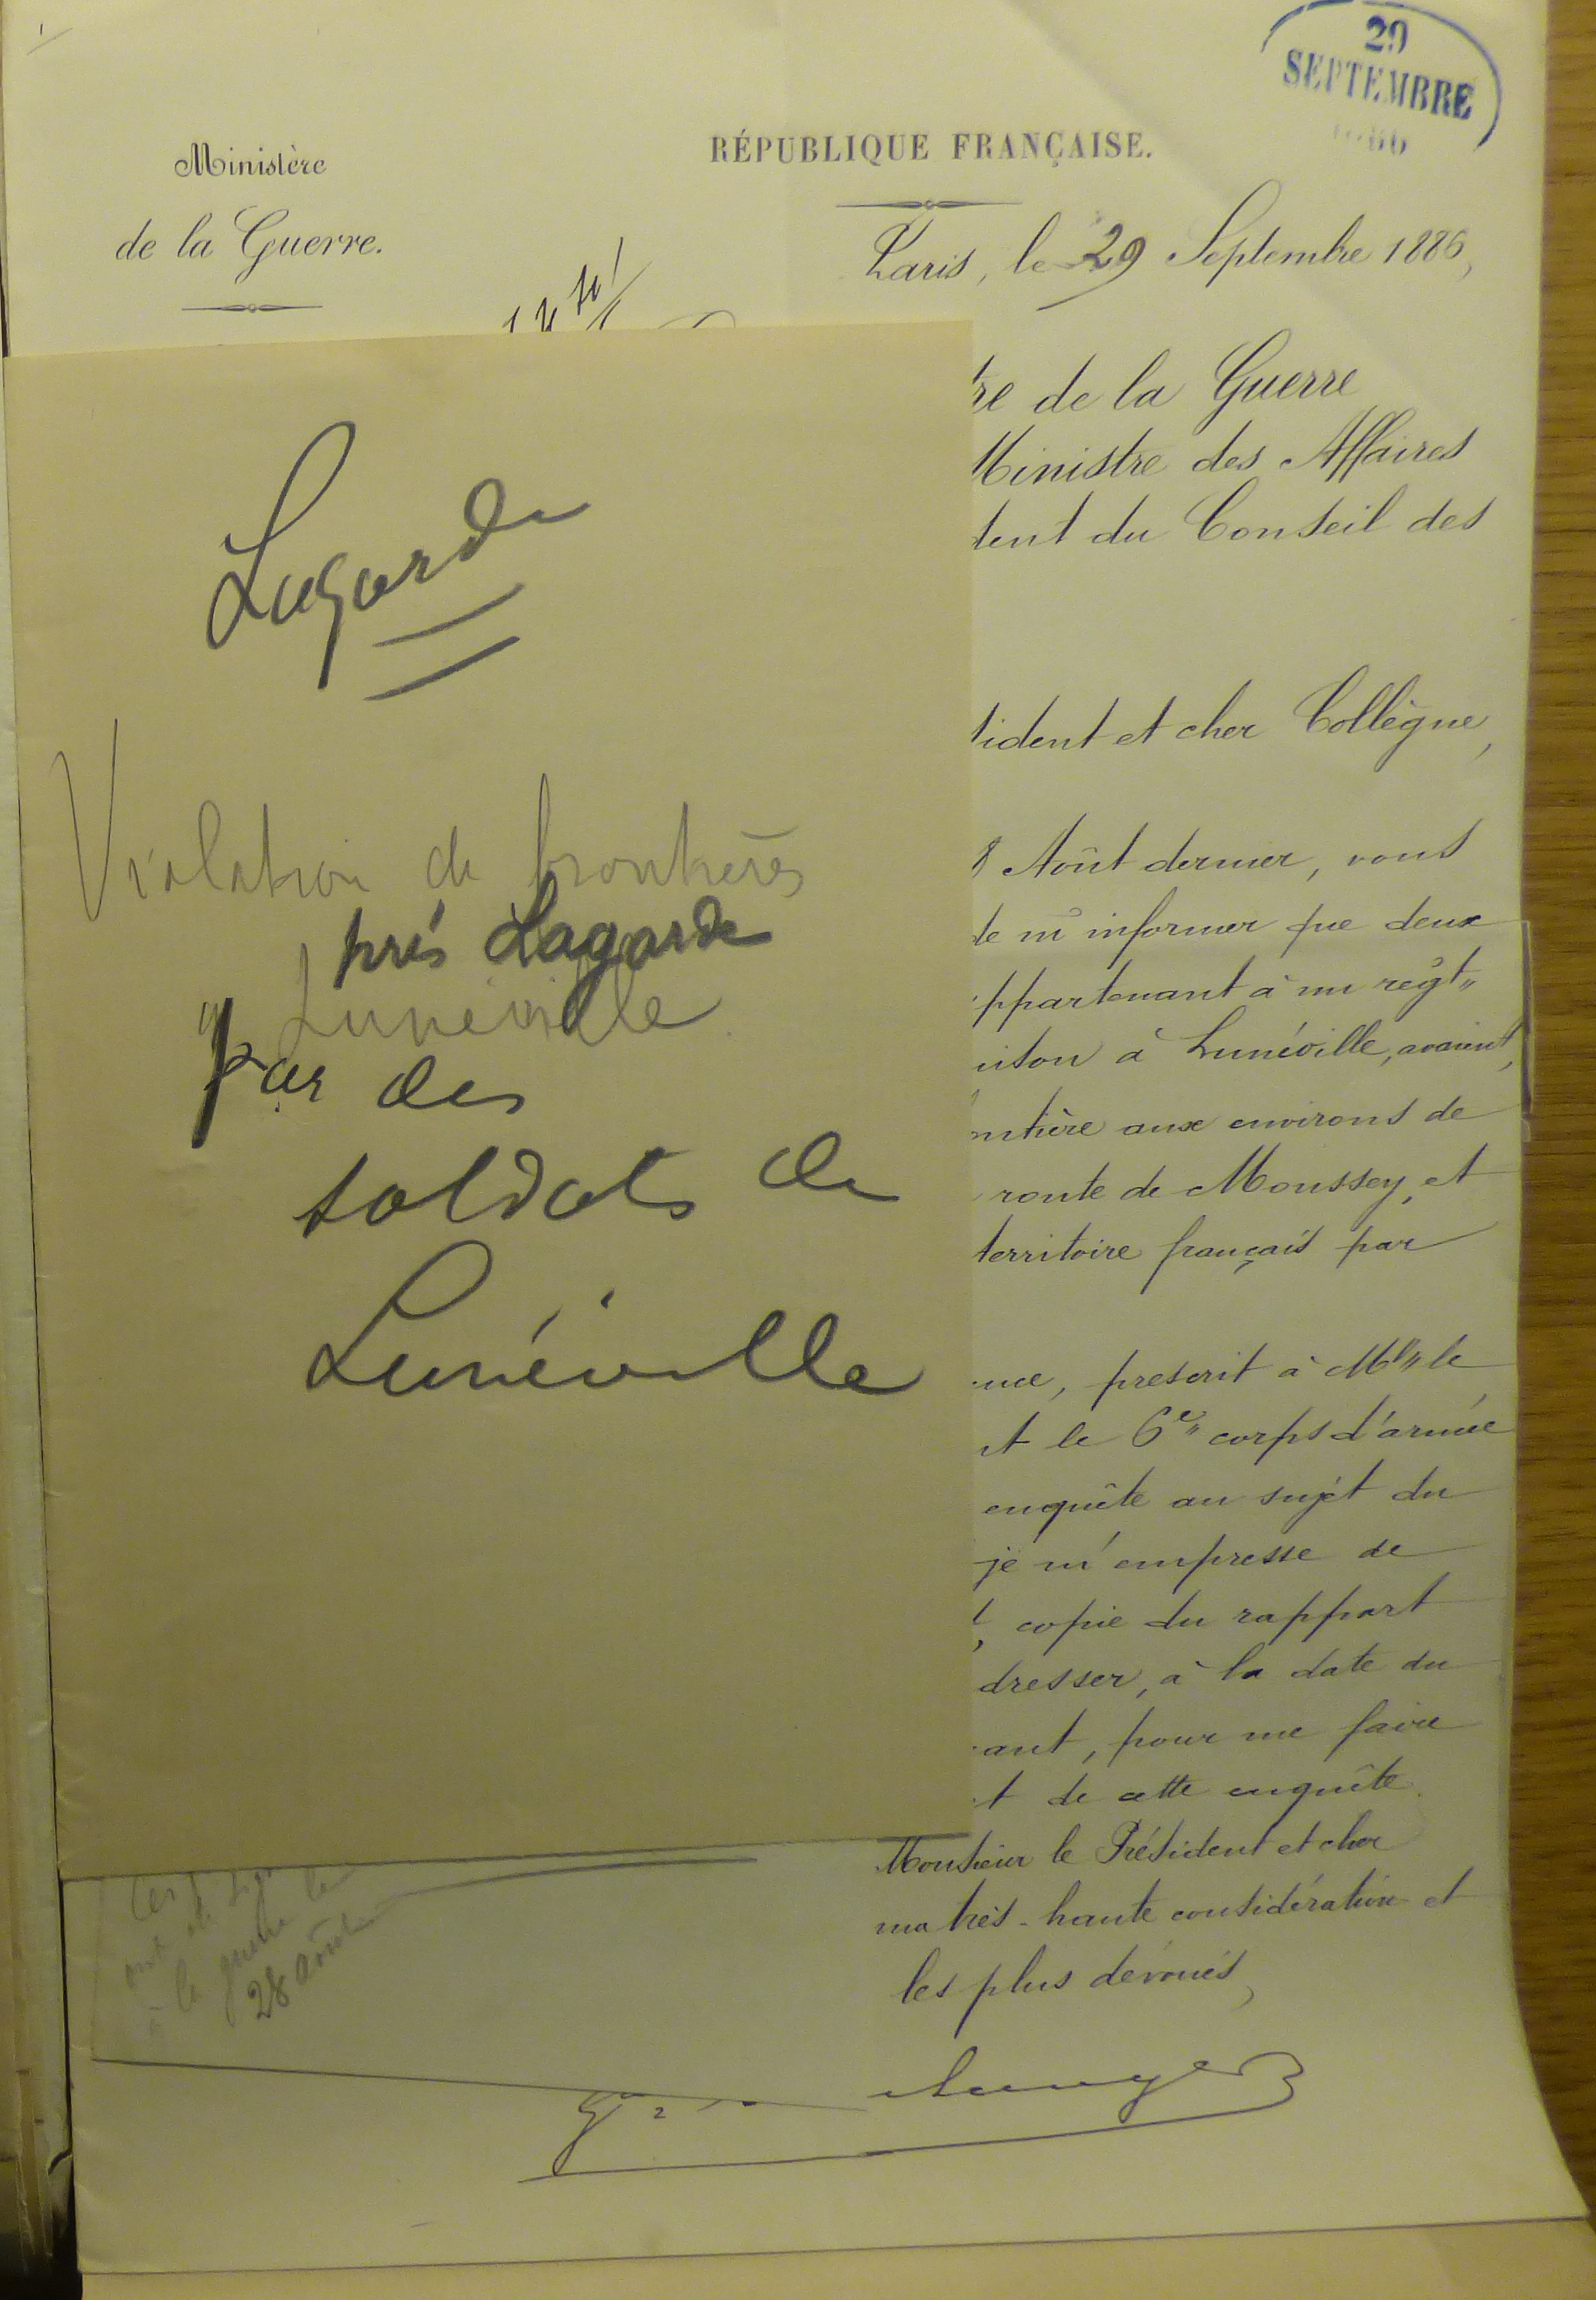 29
SEPTEMBRE
RÉPUBLIQUE FRANÇAISE.
Ministère
de la Guerre.
Paris, le 29 Septembre 1886,
de la Guerre
Ministre des Affaires
du Conseil des
et cher Collègue,
Août dernier, vous
m'informer que deux
appartenant à un régt
à Lunéville, avaient,
aux environs de
route de Moussey, et
territoire français par
prescrit à Mr le
le 6e corps d'armée
enquête au sujet du
je m'empresse de
copie du rapport
à la date du
pour me faire
de cette enquête.
Monsieur le Président et cher
ma très-haute considération et
les plus dévoués,
Lagarde
Violation de frontières
près Lagarde
Lunéville
par des
soldats de
Lunéville
à la guerre le
28 août